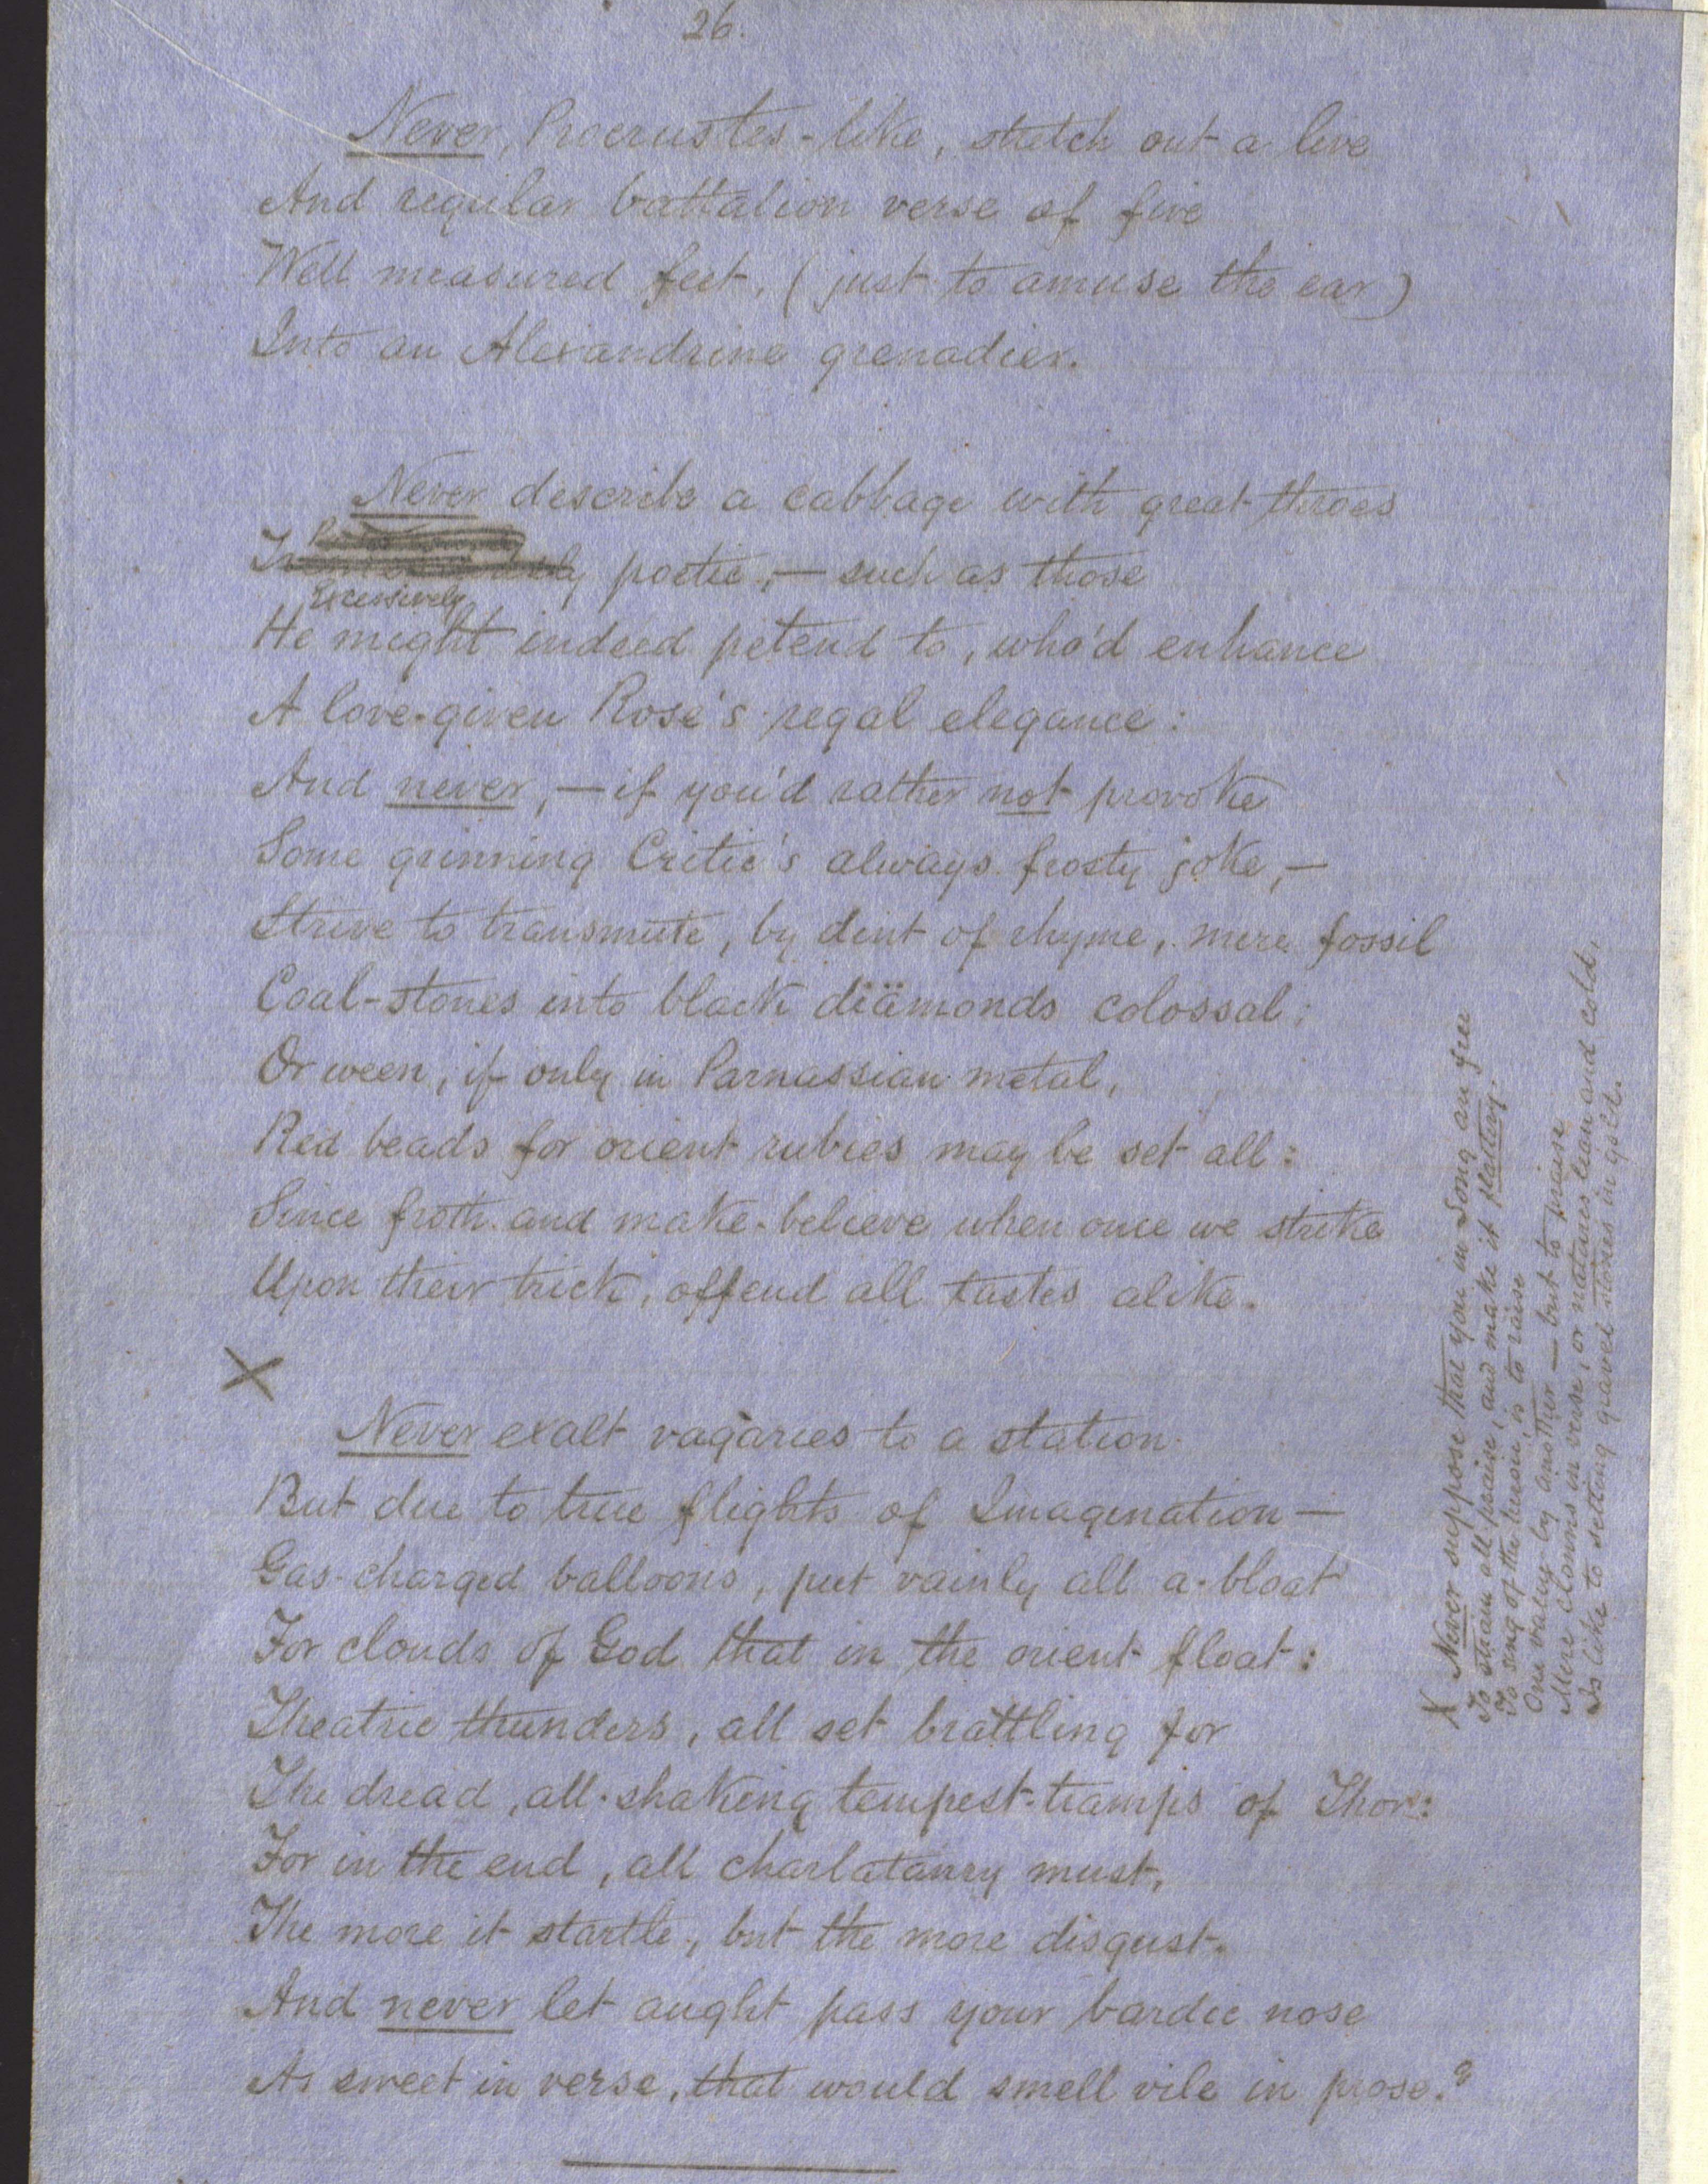 26.
Never, Procrustes-like, stretch out a live
And regular battalion verse of five
Well measured feet, (just to amuse the ear)
Into an Alexandrine grenadier.
Never describe a cabbage with great throes
poetic,— such as those
Excessively
He might indeed petend to, who'd enhance
A love-given Rose's regal elegance:
And never,—if you'd rather not provoke
Some grinning Critic's always frosty joke,—
Strive to transmute, by dint of rhyme, mere fossil
Coal-stones into black diämonds colossal;
Or ween, if only in Parnassian metal,
Red beads for orient rubies may be set all:
Since froth and make-believe when once we strike
Upon their trick, offend all tastes alike.
X
Never exalt vagaries to a station
But due to true flights of Imagination—
Gas-charged balloons, put vainly all a-bloat
For clouds of God that in the orient float:
Theatric thunders, all set brattling for
The dread, all-shaking tempest-tramps of Thor:
For in the end, all charlatanry must,
The more it startle, but the more disgust.
And never let aught pass your bardic nose
As sweet in verse, that would smell vile in prose.
X Never suppose that you in Song are free
To strain all praise, and make it flattery.
To sing of the heroic, is to raise
One valley by another — but to praise
Mere clowns in verse, or natures lean and cold,
Is like to setting gravel stones in gold.